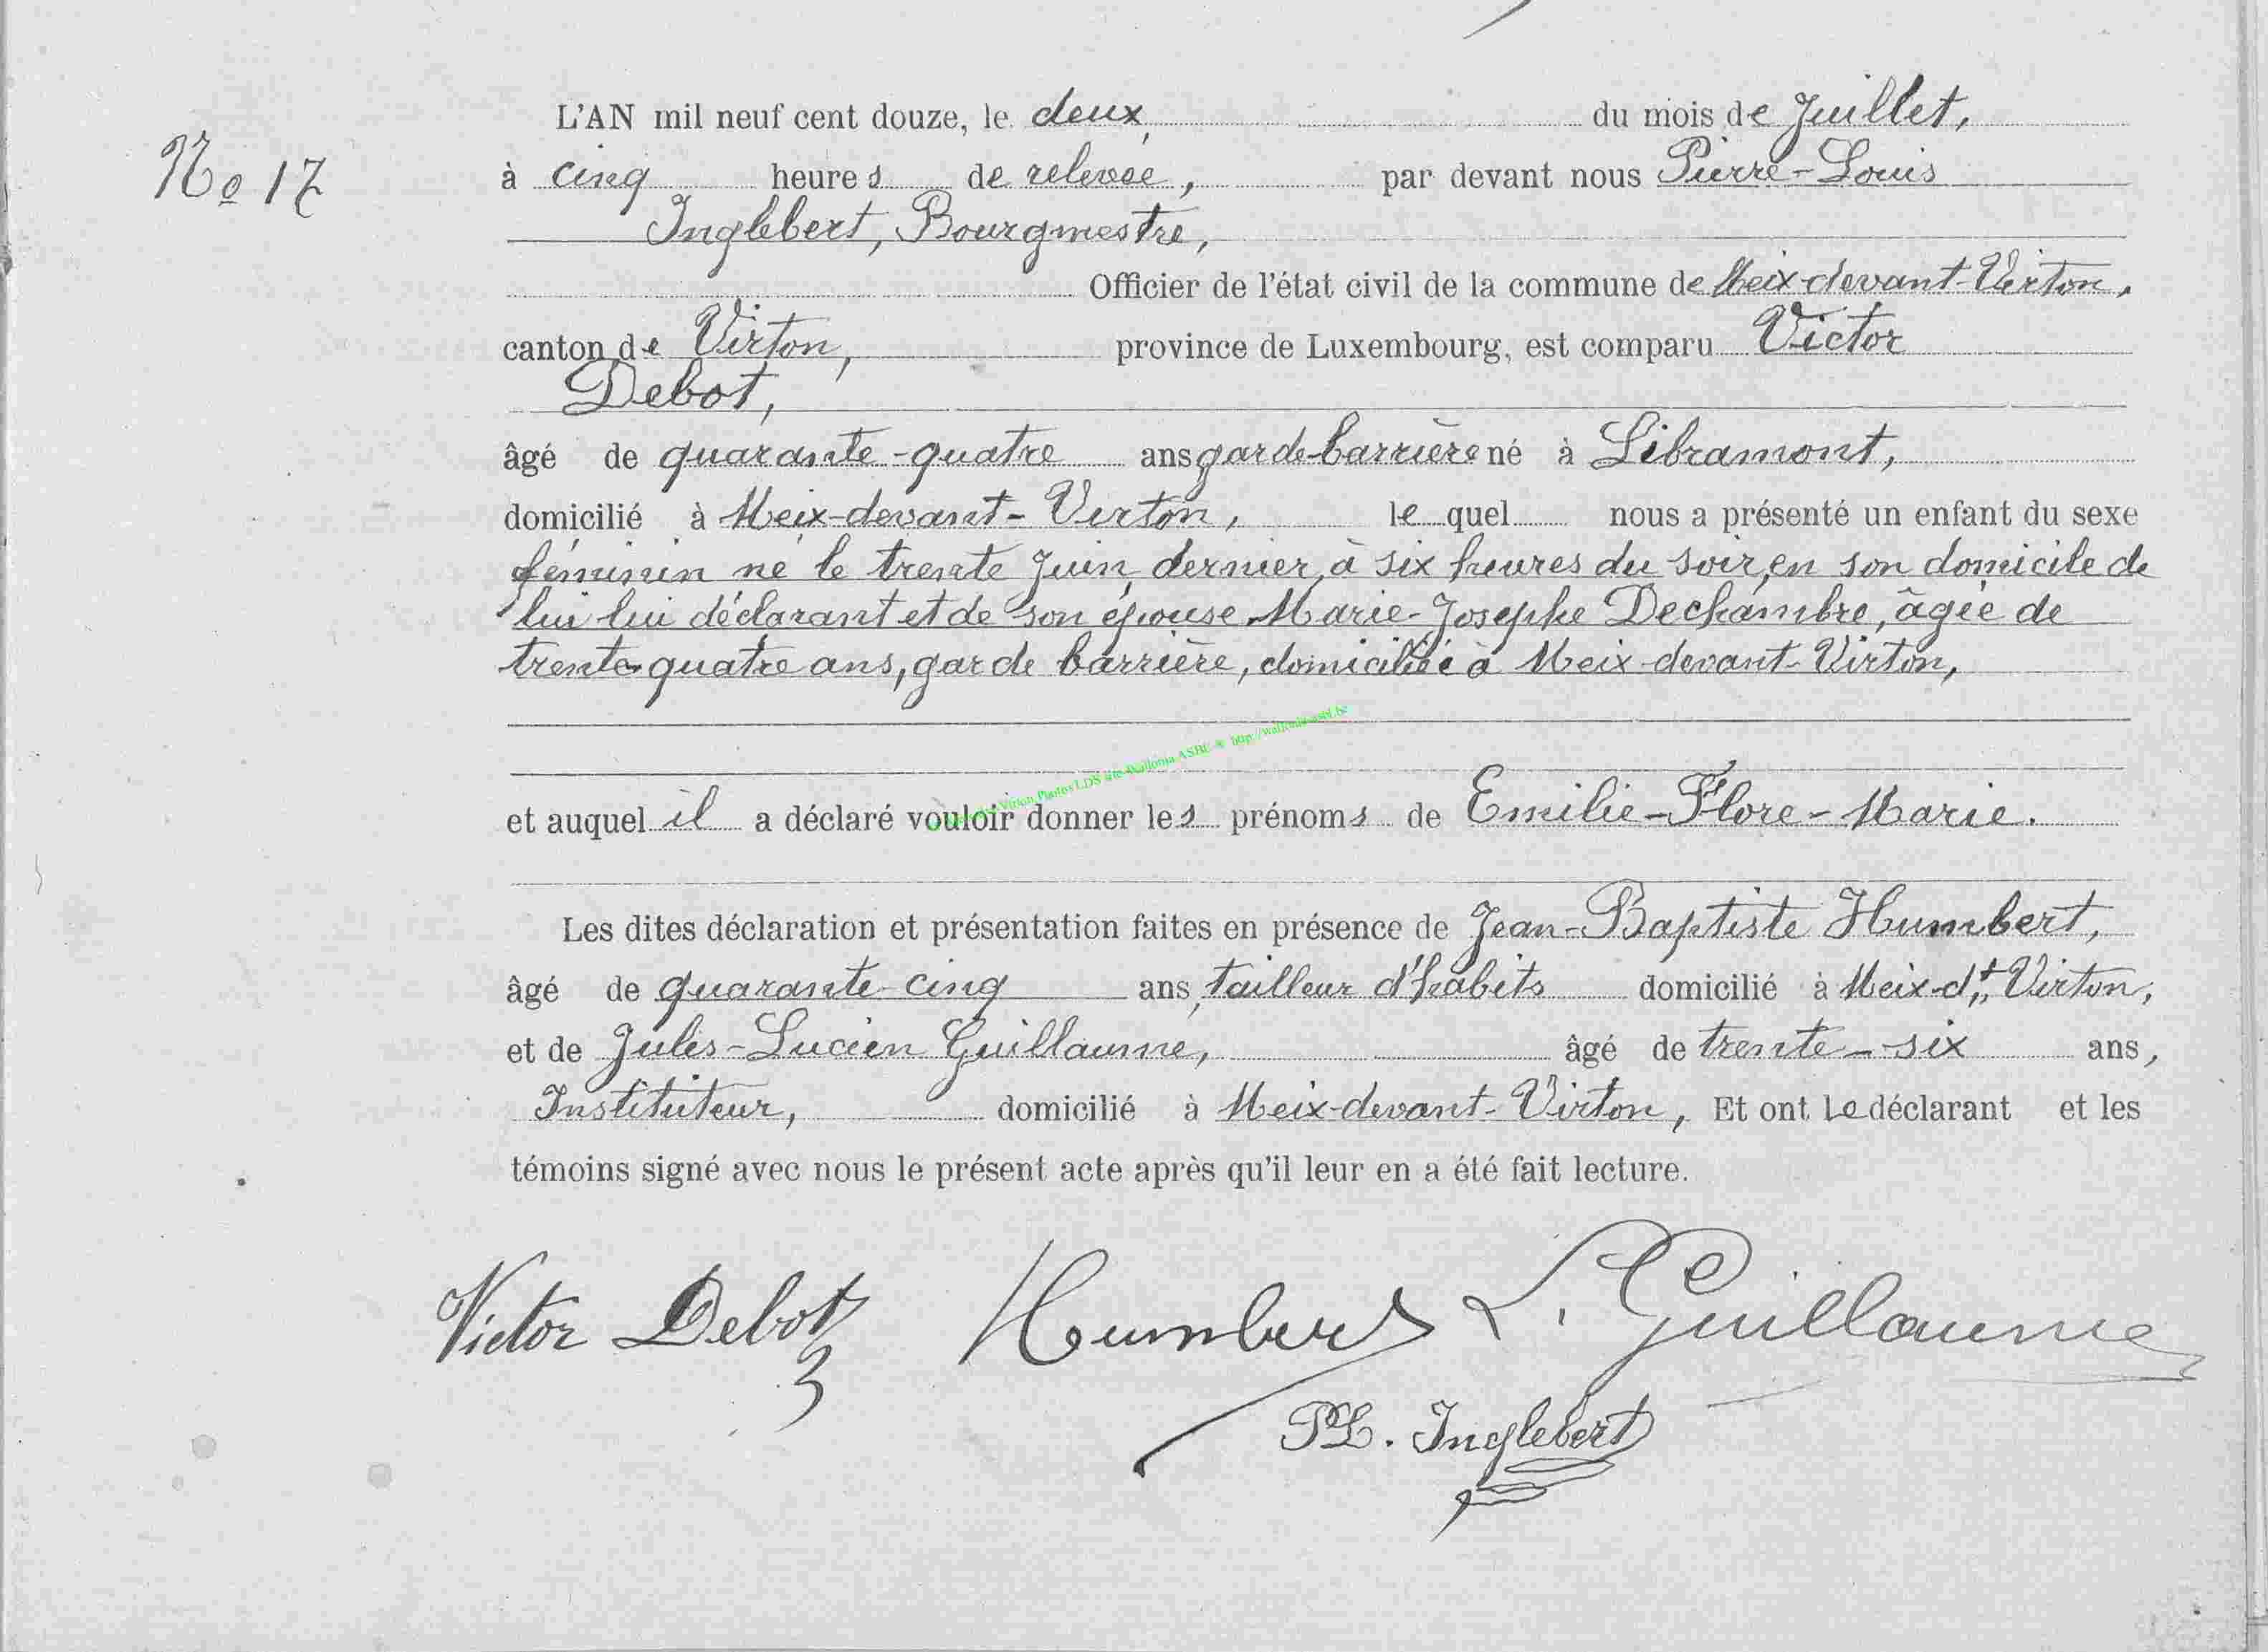 L'AN mil neuf cent douze, le deux, du mois de Juillet,
No 17
à cinq heures de relevée, par devant nous Pierre-Louis
Inglebert, Bourgmestre,
Officier de l'état civil de la commune de Meix-devant-Virton,
canton de Virton, province de Luxembourg, est comparu Victor
Debot,
âgé de quarante-quatre ans garde-barrière né à Libramont,
domicilié à Meix-devant-Virton, lequel nous a présenté un enfant du sexe
féminin né le trente Juin dernier, à six heures du soir, en son domicile de
lui lui déclarant et de son épouse Marie-Josephe Dechambre, âgée de
trente-quatre ans, garde barrière, domiciliée à Meix-devant-Virton,
Virton Photos LDS ASBL ® http://
et auquel il a déclaré vouloir donner les prénoms de Emilie-Flore-Marie.
Les dites déclaration et présentation faites en présence de Jean-Baptiste Humbert,
âgé de quarante-cinq ans, tailleur d'habits domicilié à Meix-dt Virton,
et de Jules-Lucien Guillaume, âgé de trente-six ans,
Instituteur, domicilié à Meix-devant-Virton, Et ont le déclarant et les
témoins signé avec nous le présent acte après qu'il leur en a été fait lecture.
Victor Debot Humbert L. Guillaume
PL. Inglebert